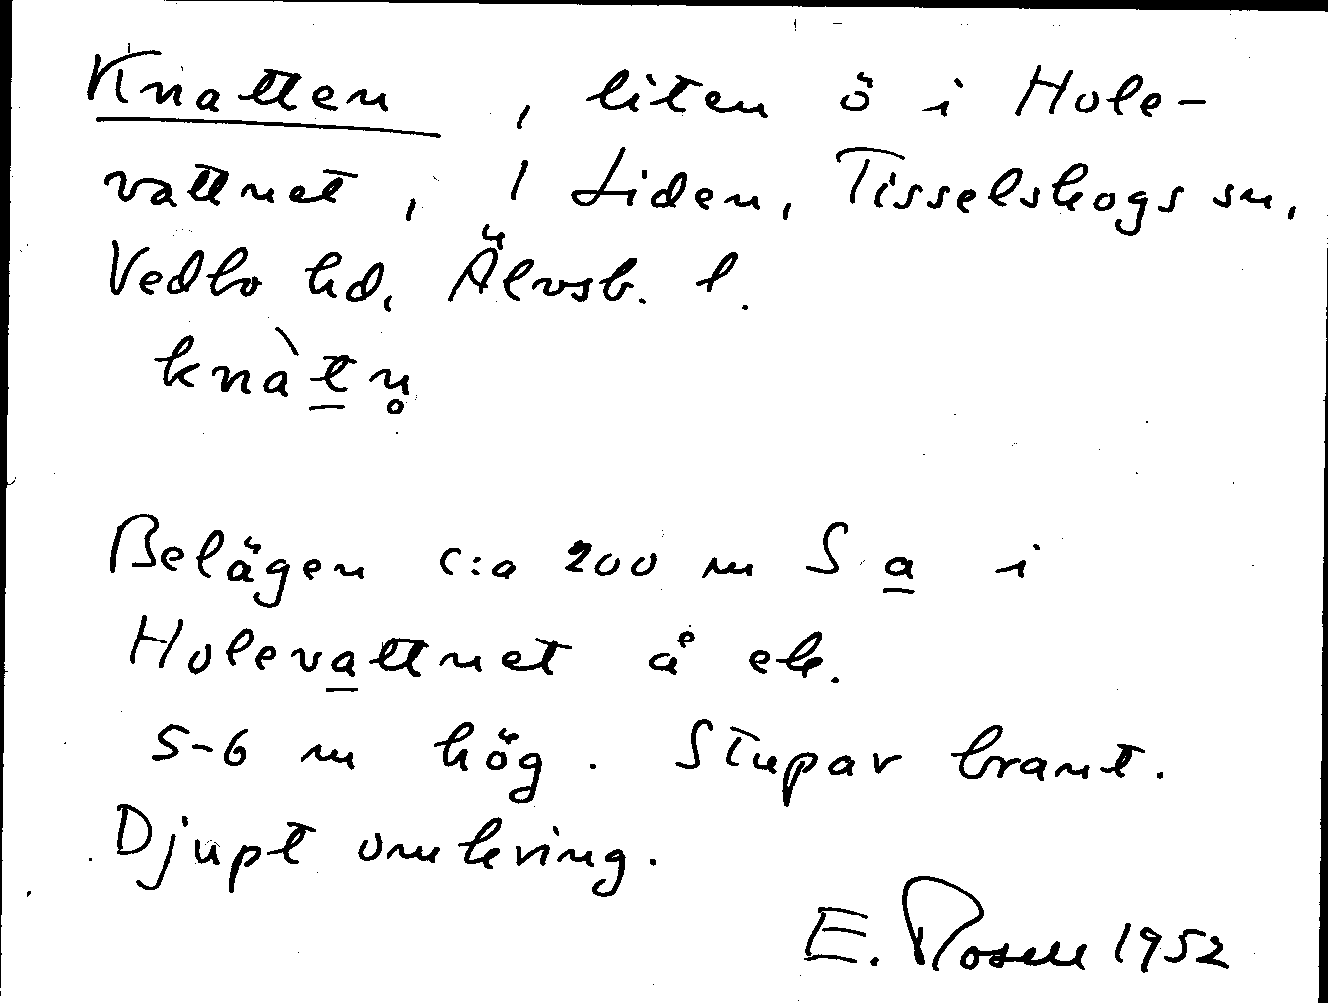 Knatten, liten ö i Hole-
vattnet, 1 Liden, Tisselskogs sn,
Vedbo hd, Älvsb. l.
knàt̲n̥
Belägen c:a 200 m S a̲ i
Holeva̲ttnet å ek.
5-6 m hög. Stupar brant.
Djupt omkring.
E. Rosell 1952